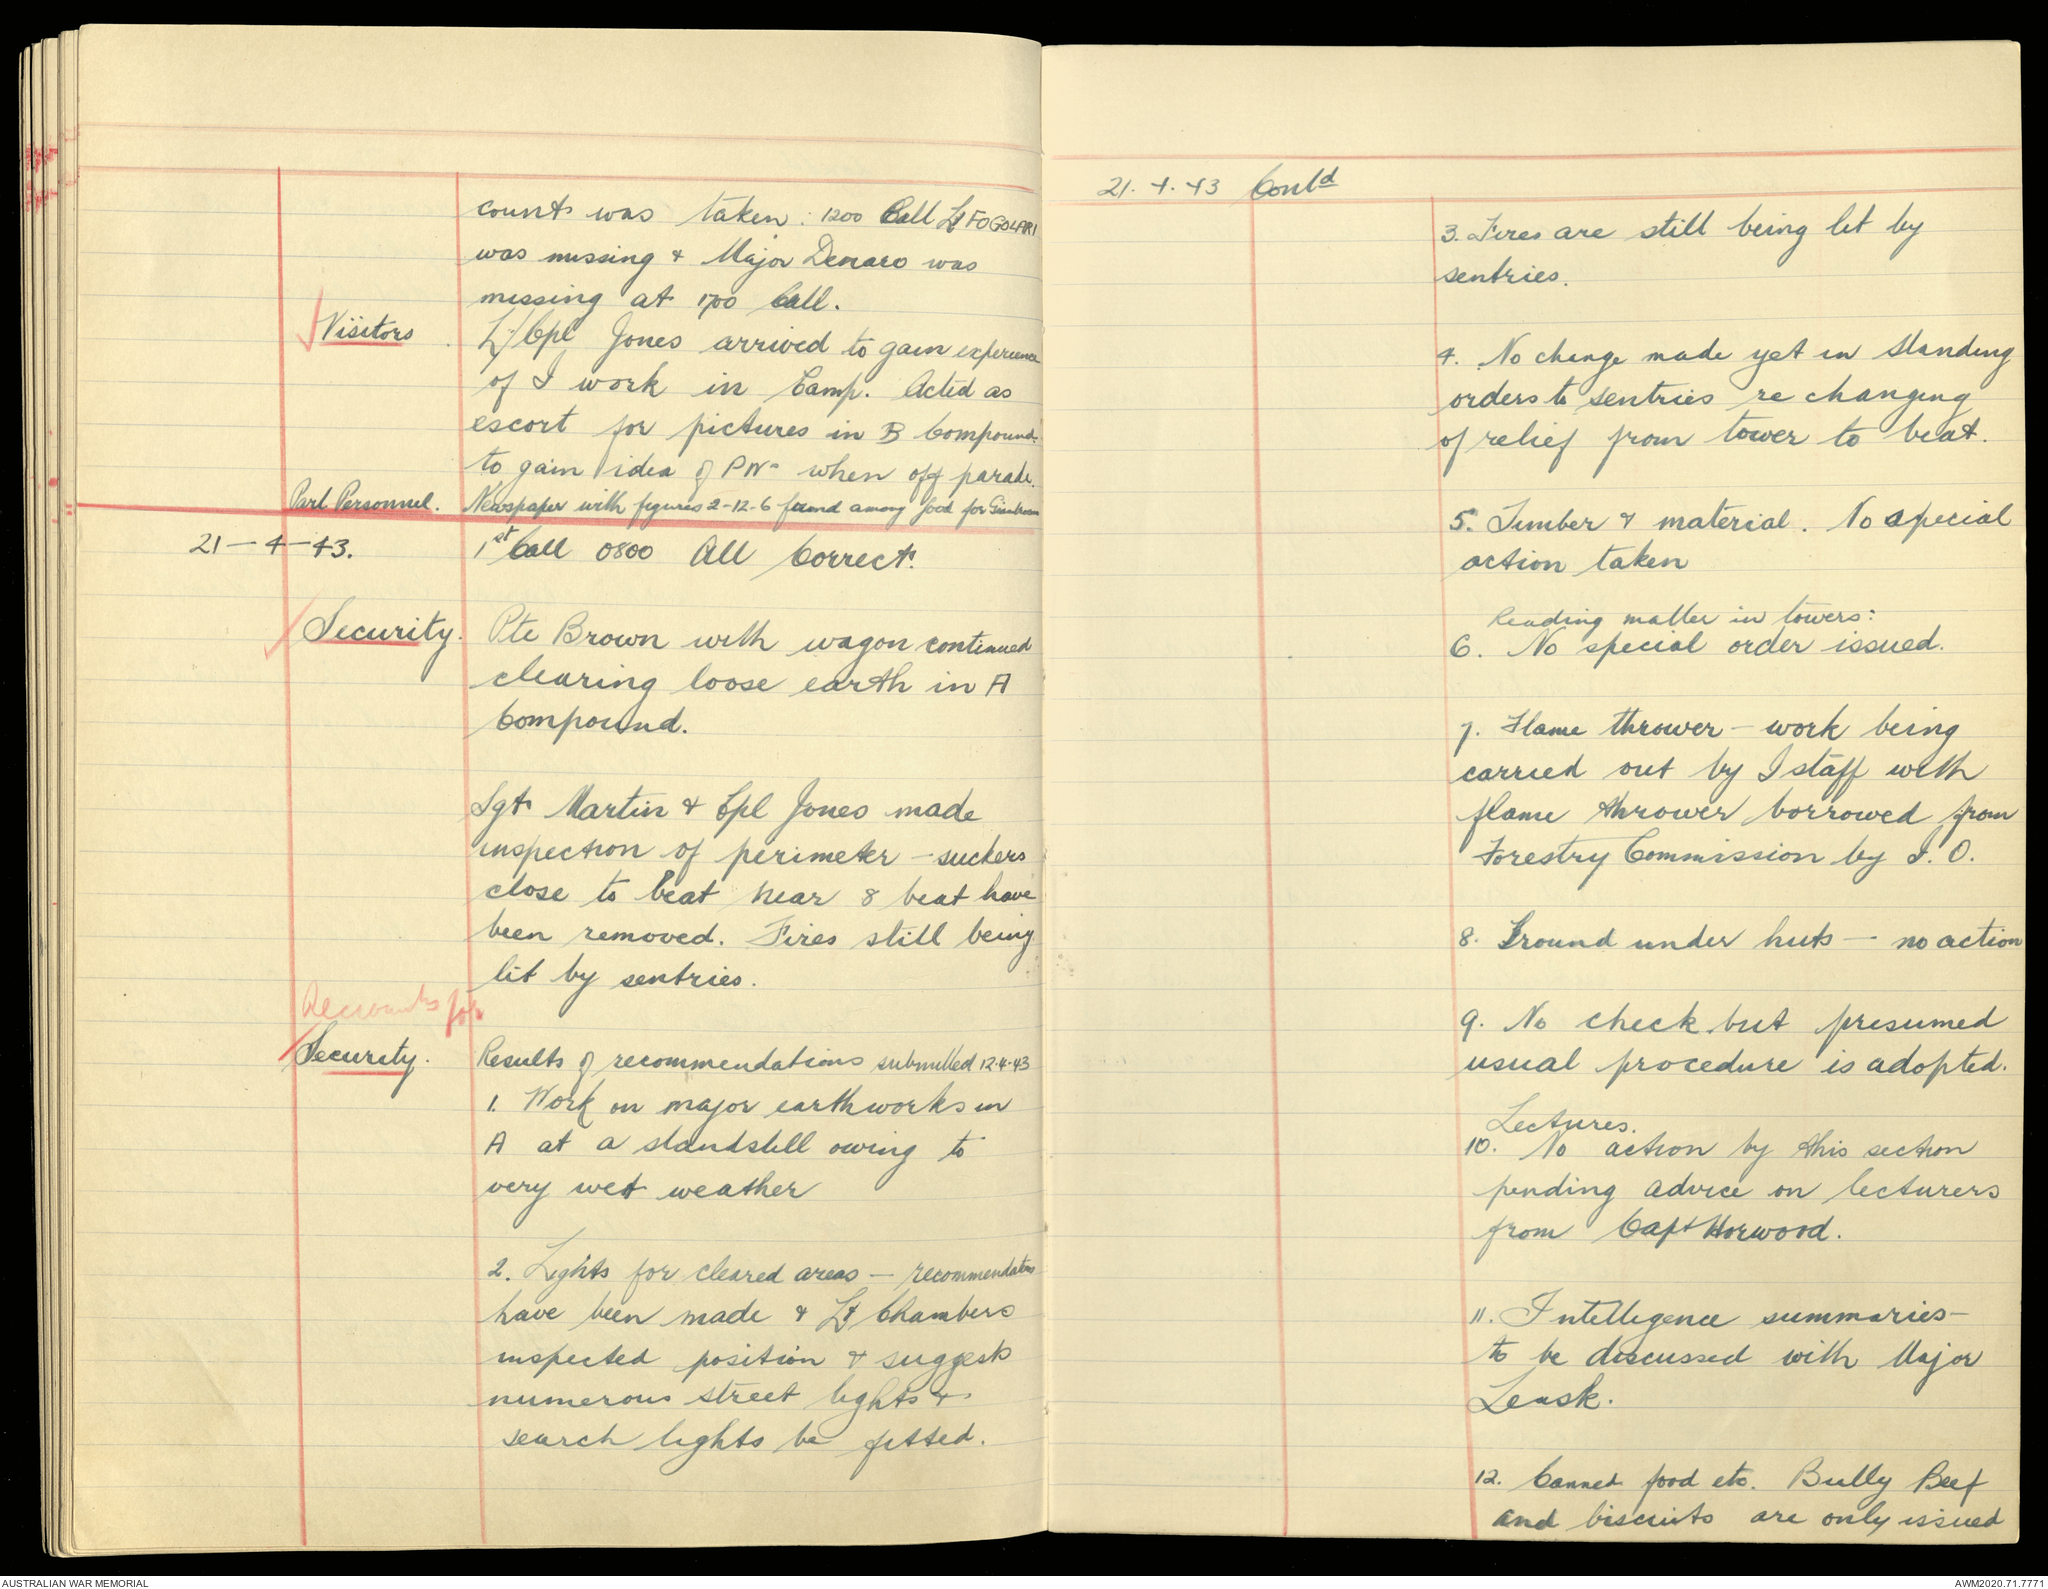 count was taken: 1200 Call Lt FOGOLARI
was missing & Major Denaro was
missing at 1700 Call.
Visitors L/Cpl Jones arrived to gain experience
of I work in Camp. Acted as
escort for pictures in B Compound
to gain idea of PWs when off parade.
Part Personnel. Newspaper with figures 2-12-6 found among food for
21-4-43. 1st Call 0800 All Correct.
Security. Pte Brown with wagon continued
clearing loose earth in A
Compound.
Sgt Martin & Cpl Jones made
inspection of perimeter - suckers
close to beat near 8 beat have
been removed. Fires still being
lit by sentries.
Accounts for
Security. Results of recommendations submitted 12.4.43
1. Work on major earthworks in
A at a standstill owing to
very wet weather
2. Lights for cleared areas - recommendations
have been made & Lt Chambers
inspected position & suggests
numerous street lights &
search lights be fitted.
21.4.43 Contd
3. Fires are still being lit by
sentries.
4. No change made yet in standing
orders to sentries re changing
of relief from tower to beat.
5. Timber & material. No special
action taken
Reading matter in towers:
6. No special order issued.
7. Flame thrower - work being
carried out by I staff with
flame thrower borrowed from
Forestry Commission by I.O.
8. Ground under huts - no action
9. No check but presumed
usual procedure is adopted.
Lectures.
10. No action by this section
pending advice on lecturers
from Capt Horwood.
11. Intelligence summaries-
to be discussed with Major
Leask.
12. Canned food etc. Bully Beef
and biscuits are only issued
AUSTRALIAN WAR MEMORIAL
AWM2020.71.7771